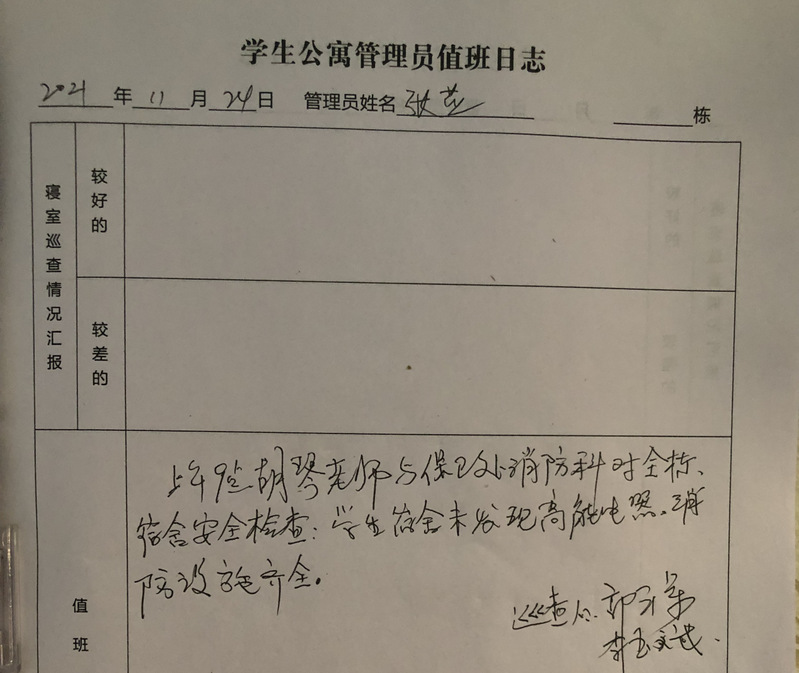 学生公寓管理员值班日志
2021年11月24日 管理员姓名张 栋
寝室巡查情况汇报
较好的
较差的
上午9点胡琴老师与保卫处消防科对全栋、
宿舍安全检查:学生宿舍未发现高能电器。消
防设施齐全。
值班
巡查人.郭
李玉斌.